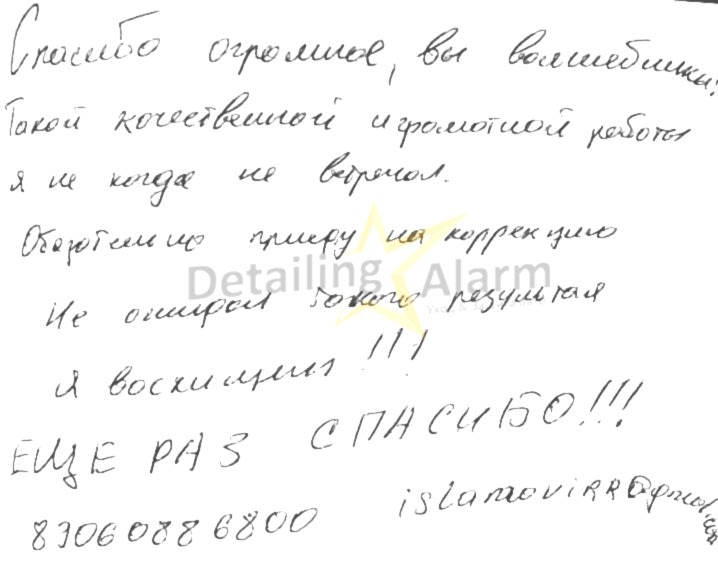 Спасибо огромное, вы волшебники!
Такой качественной и грамотной работы
я не когда не встречал.
Обязательно приеду на коррекцию
Detailing Alarm
Не ожидал такого результата
Я восхищен !!!
ЕЩЕ РАЗ СПАСИБО!!!
89060886800 islamovirr@gmail.com